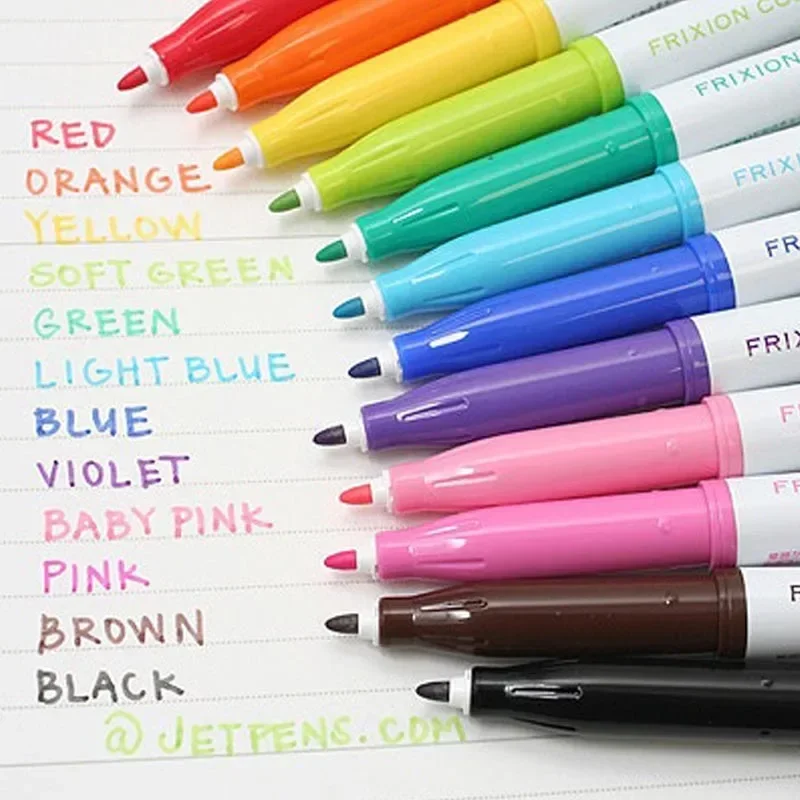 RED
ORANGE
YELLOW
SOFT GREEN
GREEN
LIGHT BLUE
BLUE
VIOLET
BABY PINK
PINK
BROWN
BLACK
@JETPENS.COM
FRIXION CO
FRIXION
FRIXION
FR
FRIX
F
FR
F